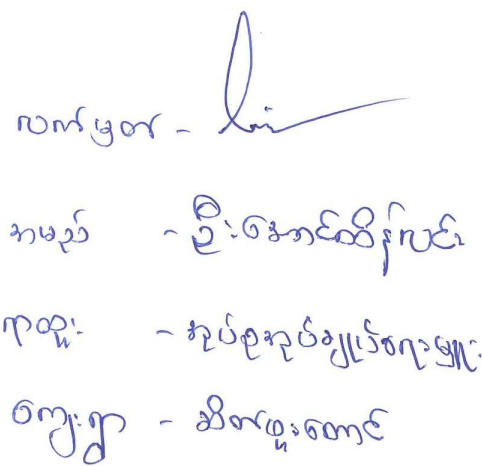 လက်မှတ် -
အမည် - ဦးအောင်ထိန်လင်း
ရာထူး - အုပ်စုအုပ်ချုပ်ရေးမှူး
ကျေးရွာ - ဆိတ်ဖူးတောင်